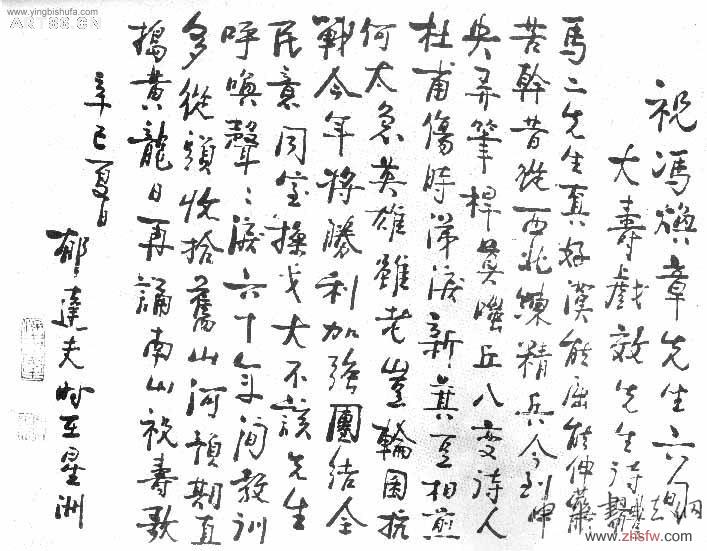 www.yingbishufa.com
祝馮煥章先生六
大壽戲效先生詩
馬二先生真好漢能屈能伸
苦幹昔從西北練精兵今到中
央弄筆桿莫嗤丘八變詩人
杜甫傷時涕淚新萁豆相煎
何太急英雄雖老豈輪囷抗
戰今年將勝利加強團結全
民意同室操戈大不該先生
呼喚聲〻淚六十年間教訓
多從頭收拾舊山河預期直
搗黃龍日再誦南山祝壽歌
辛巳夏日
郁達夫時在星洲
www.zhsfw.com